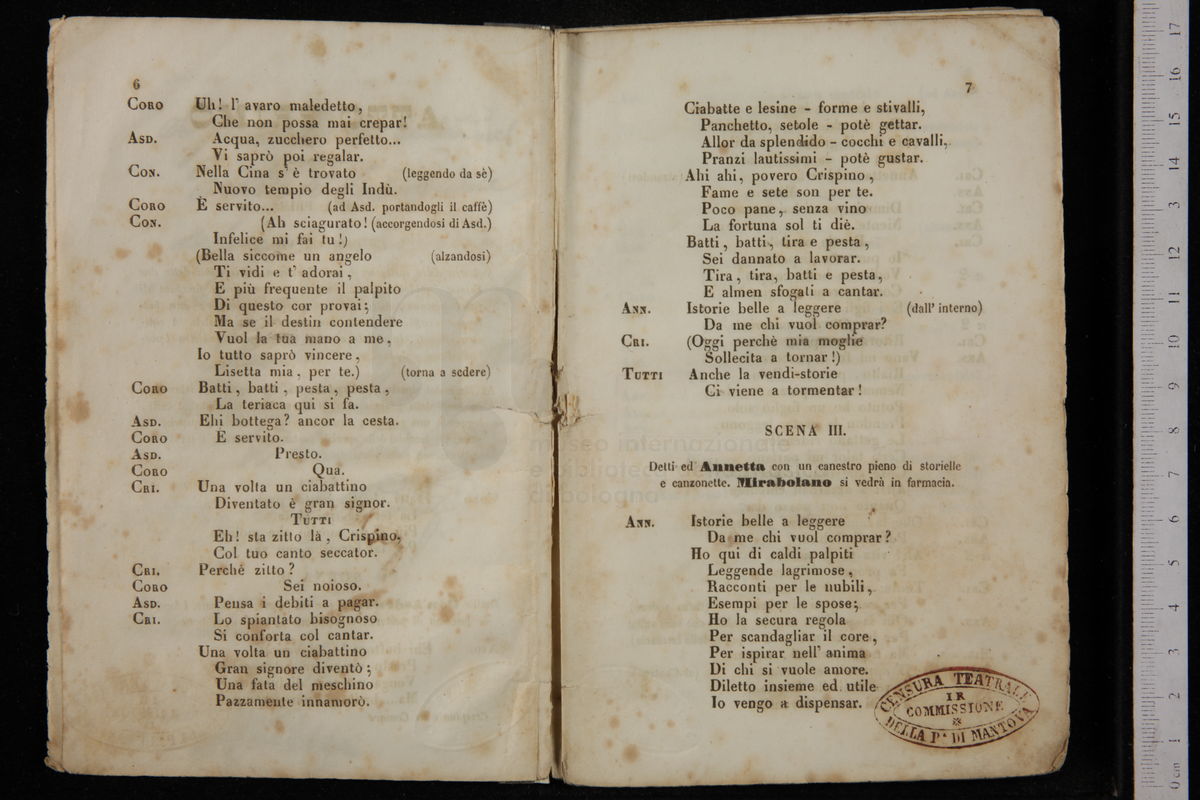 6
CORO Uh! l' avaro maledetto,
Che non possa mai crepar!
ASD. Acqua, zucchero perfetto...
Vi saprò poi regalar.
CON. Nella Cina s' è trovato (leggendo da sè)
Nuovo tempio degli Indù.
CORO È servito... (ad Asd. portandogli il caffè)
CON. (Ah sciagurato! (accorgendosi di Asd.)
Infelice mi fai tu!)
(Bella siccome un angelo (alzandosi)
Ti vidi e t' adorai,
E più frequente il palpito
Di questo cor provai;
Ma se il destin contendere
Vuol la tua mano a me,
Io tutto saprò vincere,
Lisetta mia, per te.) (torna a sedere)
CORO Batti, batti, pesta, pesta,
La teriaca qui si fa.
ASD. Ehi bottega? ancor la cesta.
CORO È servito.
ASD. Presto.
CORO Qua.
CRI. Una volta un ciabattino
Diventato è gran signor.
TUTTI
Eh! sta zitto là, Crispino,
Col tuo canto seccator.
CRI. Perchè zitto?
CORO Sei noioso.
ASD. Pensa i debiti a pagar.
CRI. Lo spiantato bisognoso
Si conforta col cantar.
Una volta un ciabattino
Gran signore diventò;
Una fata del meschino
Pazzamente innamorò.
7
Ciabatte e lesine - forme e stivalli,
Panchetto, setole - potè gettar.
Allor da splendido - cocchi e cavalli,
Pranzi lautissimi - potè gustar.
Ahi ahi, povero Crispino,
Fame e sete son per te.
Poco pane, senza vino
La fortuna sol ti diè.
Batti, batti, tira e pesta,
Sei dannato a lavorar.
Tira, tira, batti e pesta,
E almen sfogati a cantar.
ANN. Istorie belle a leggere (dall' interno)
Da me chi vuol comprar?
CRI. (Oggi perchè mia moglie
Sollecita a tornar!)
TUTTI Anche la vendi-storie
Ci viene a tormentar!
SCENA III.
Detti ed Annetta con un canestro pieno di storielle
e canzonette. Mirabolano si vedrà in farmacia.
ANN. Istorie belle a leggere
Da me chi vuol comprar?
Ho qui di caldi palpiti
Leggende lagrimose,
Racconti per le nubili,
Esempi per le spose;
Ho la secura regola
Per scandagliar il core,
Per ispirar nell' anima
Di chi si vuole amore.
Diletto insieme ed utile
Io vengo a dispensar.
CENSURA TEATRALE
I R
COMMISSIONE
DELLA P.ª DI MANTOVA
museo internazionale
e biblioteca
di bologna
0 cm 1 2 3 4 5 6 7 8 9 10 11 12 13 14 15 16 17